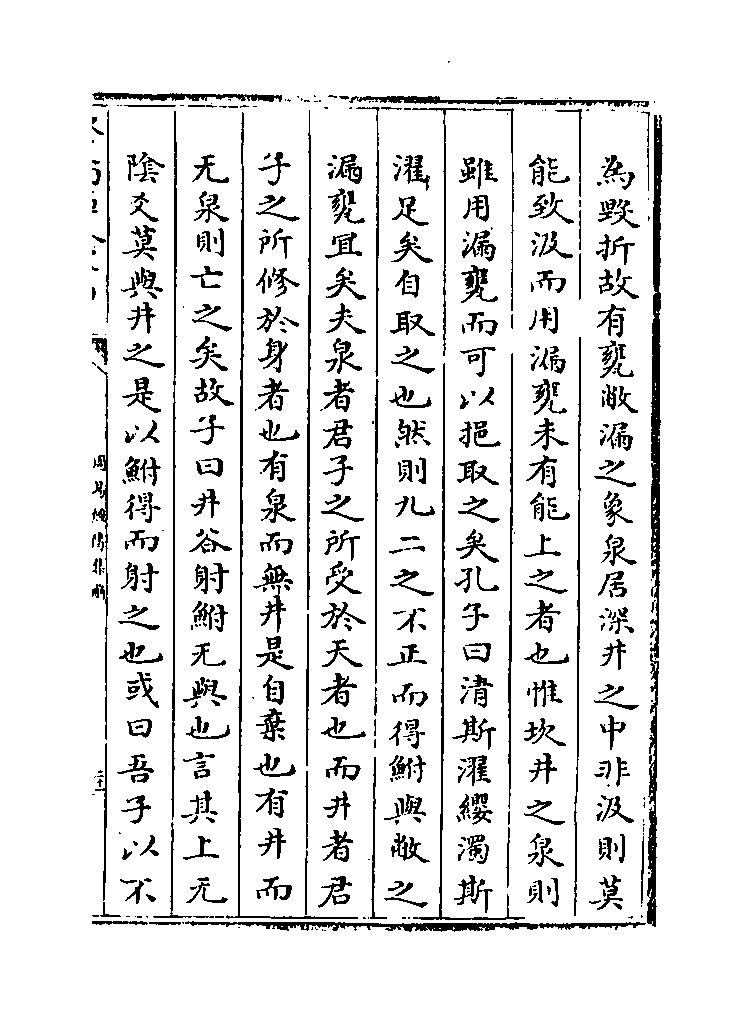 為毀折故有甕敝漏之象泉居深井之中非汲則莫
能致汲而用漏甕未有能上之者也惟坎井之泉則
雖用漏甕而可以挹取之矣孔子曰清斯濯纓濁斯
濯足矣自取之也然則九二之不正而得鮒與敝之
漏甕宜矣夫泉者君子之所受於天者也而井者君
子之所修於身者也有泉而無井是自棄也有井而
无泉則亡之矣故子曰井谷射鮒无與也言其上无
陰爻莫與井之是以鮒得而射之也或曰吾子以不